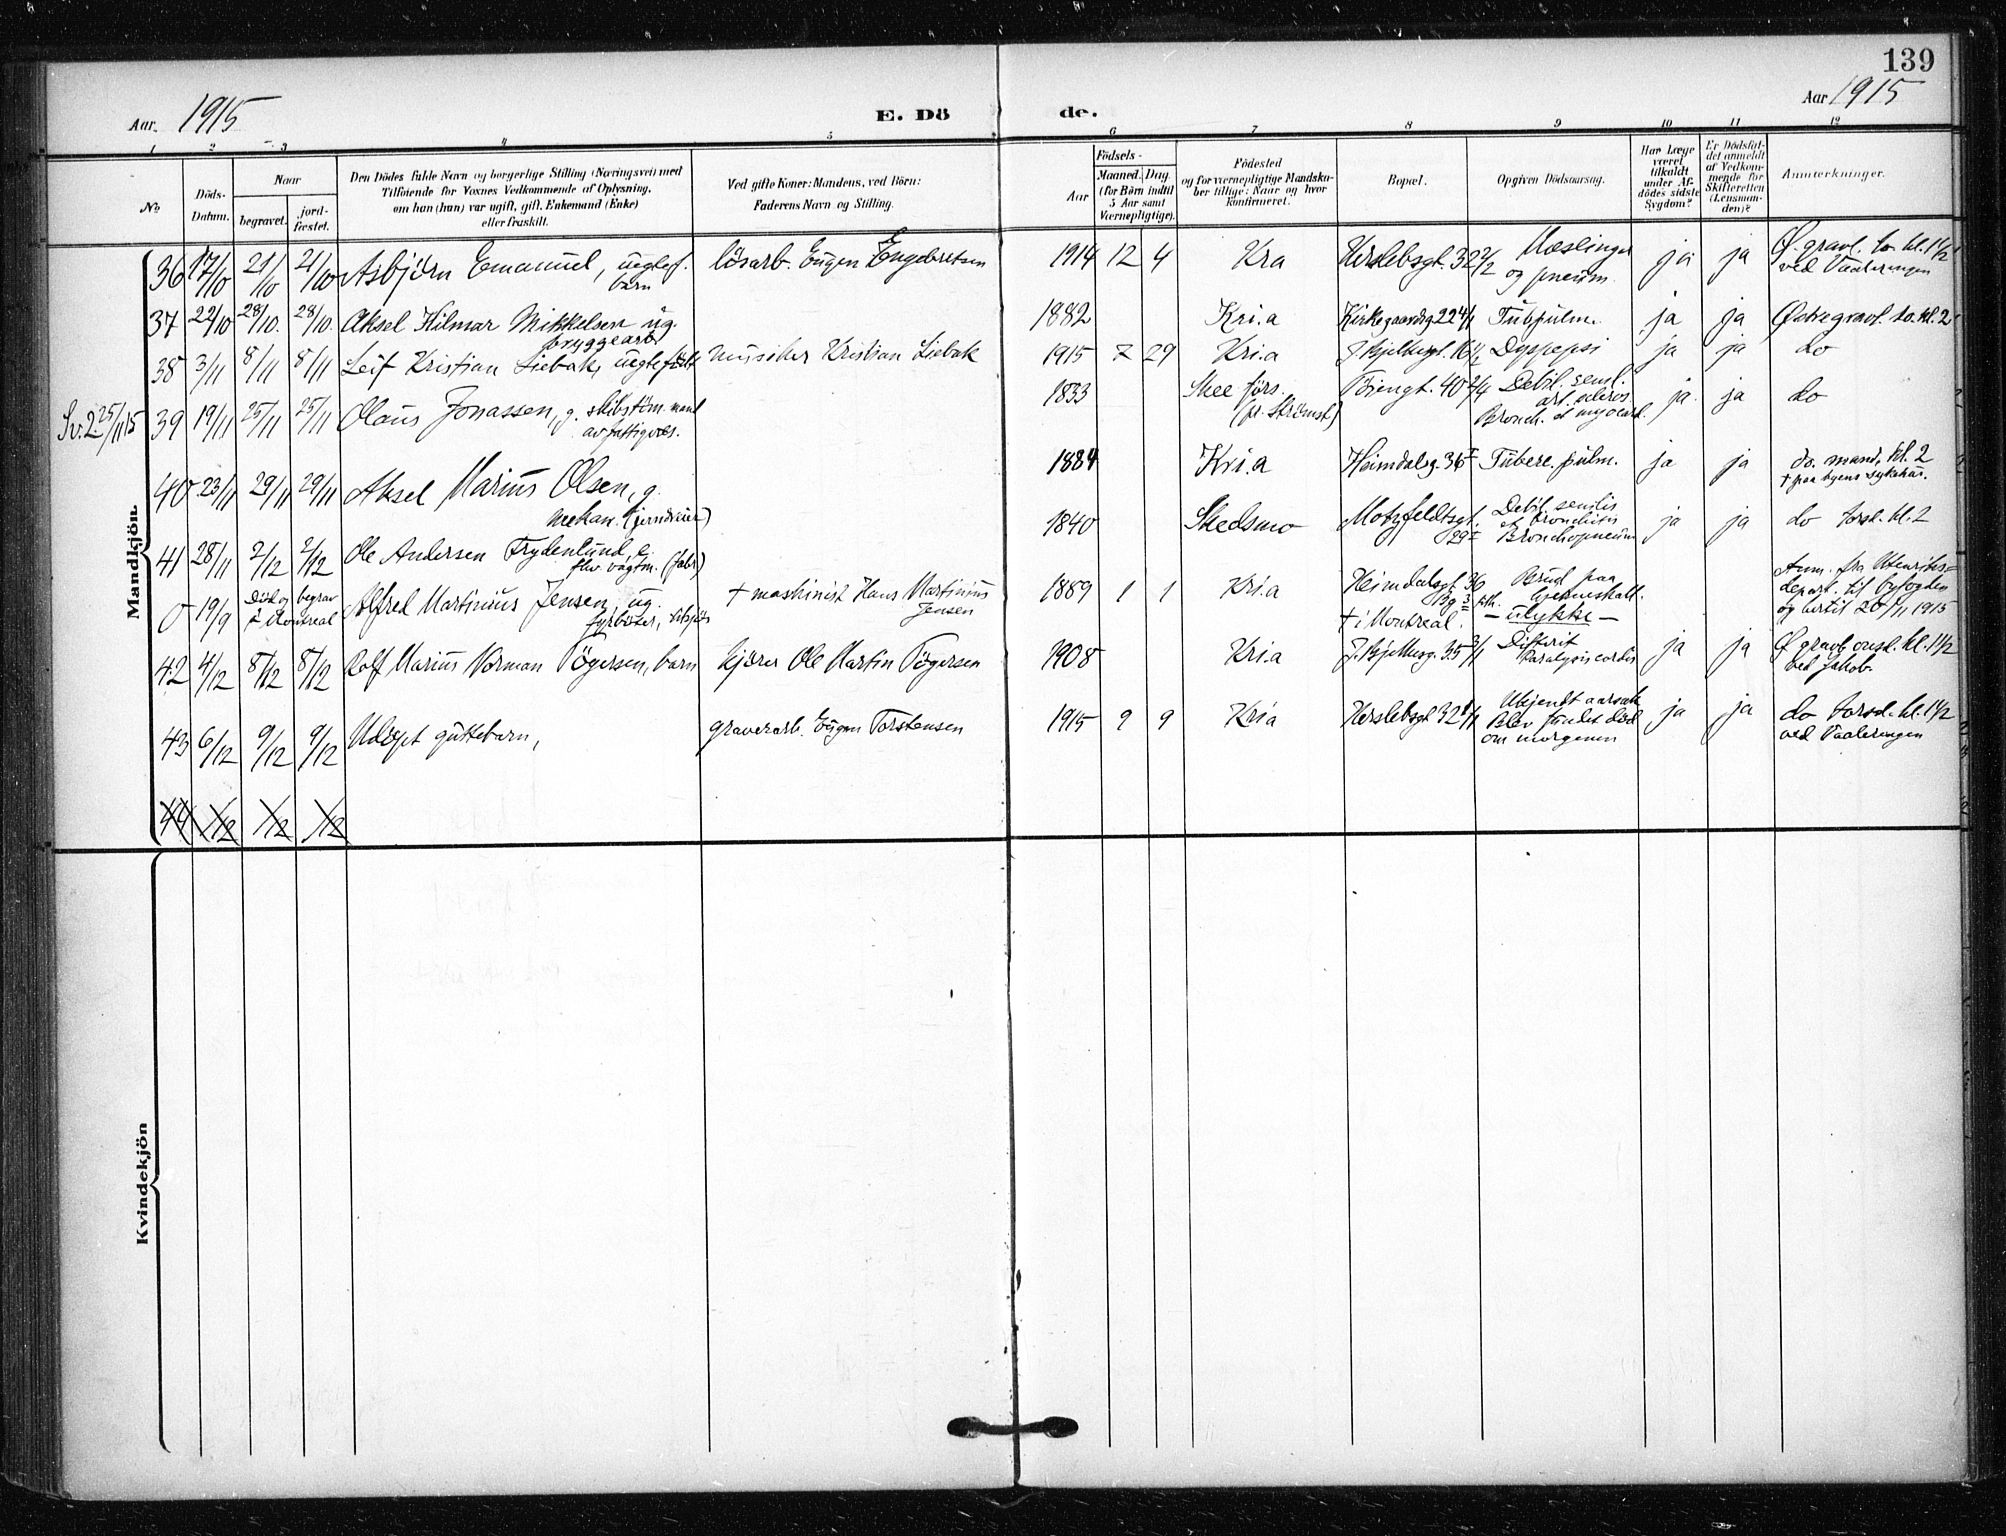 139
Aar 1915
E. Dö de.
Aar 1915
1 2 3 4 5 6 7 8 9 10 11 12
No
Döds-
Datum.
Naar
begravet.
jord-
fæstet.
Den Dödes fulde Navn og borgerlige Stilling (Næringsvei) med
Tilföiende for Voxnes Vedkommende af Oplysning,
om han (hun) var ugift, gift, Enkemand (Enke)
eller fraskilt.
Ved gifte Koner: Mandens, ved Börn:
Faderens Navn og Stilling.
Födsels-
Aar
Maaned. Dag
(for Börn indtil
5 Aar samt
Værnepligtige).
Födested
og for værnepligtige Mandska-
ber tillige: Naar og hvor
konfirmeret.
Bopæl.
Opgiven Dödsaarsag.
Har Læge
været
tilkaldt
under Af-
dödes sidste
Sygdom?
Er Dödsfal-
det anmeldt
af Vedkom-
mende for
Skifteretten
(Lensman-
den)?
Anmærkninger.
Mandkjön.
36 17/10 21/10 21/10 Asbjörn Emanuel, uegtef. barn lösarb. Eugen Engebretsen 1914 12 4 Kra Herslebsgt. 32 2/2 Mæslinger og pneum. ja ja Ø. gravl. to. kl. 1 1/2 ved Vaalerengen
37 22/10 28/10. 28/10. Aksel Hilmar Mikkelsen ug. bryggearb 1882 Kri.a Kirkegaardsg. 22 4/1 Tub. pulm. ja ja Østre gravl. to. kl. 2
38 3/11 8/11 8/11 Leif Kristian Liebak, uegtefödt musiker Kristian Liebak 1915 7 29 Kri.a Dyspepsi ja ja do
Sv. 2. 25/11 15
39 19/11 25/11 25/11 Olaus Jonassen, g. skibstöm.mand av fattigves. 1833 Skee (pr. Strömst.) 40 2/4 Debil. senil. art. scleros. Bronch. et myocard. ja. ja do
40 23/11 29/11 29/11 Aksel Marius Olsen, g. mekan. (jerndreier) 1884 Kri.a Heimdalsg. 36 I Tuberc. pulm. ja ja do. mand. kl. 2 + paa byens sykehus.
41 28/11 2/12 2/12 Ole Andersen Frydenlund, e. fhv. vagtm. (fabr.) 1840 Skedsmo Motzfeldtsgt. 29 I Debil. senilis et bronchitis Bronchopneum ja ja do torsd. kl. 2
0 19/9 Död og begrav i Montreal Alfred Martinius Jensen, ug. fyrböter, + maskinist Hans Martinius Jensen 1889 1 1 Kri.a Heimdalsgt 36 + i Montreal. Brud paa hjerneskall. — ulykke — Anm. fra Utenriks- depart. til byfogden og hertil 20/11 1915
42 4/12 8/12 8/12 Rolf Marius Norman Tögersen, barn kjörer Ole Martin Tögersen 1908 Kri.a 35 3/1 Difterit Paralysis cordis ja ja Ø gravl onsd. kl. 1 1/2 ved Jakob.
43 6/12 9/12 9/12 Udøpt guttebarn, graverarb. Eugen Torstensen 1915 9 9 Kria Herslebsgt 32 1/1 Ukjendt aarsak Blev fundet död om morgenen ja ja do torsd. kl. 1 1/2 ved Vaalerengen
44 /12 /12 /12
Kvindekjön